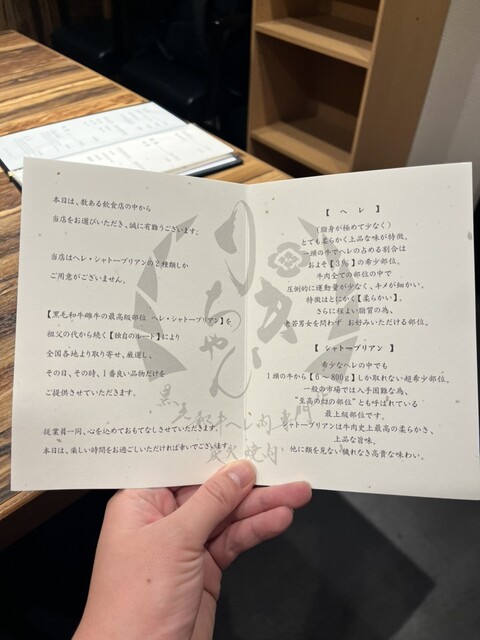 本日は、数ある飲食店の中から
当店をお選びいただき、誠に有難うございます。
当店はヘレ・シャトーブリアンの2種類しか
ご用意がございません。
【黒毛和牛雌牛の最高級部位 ヘレ・シャトーブリアン】を
祖父の代から続く【独自のルート】により
全国各地より取り寄せ、厳選し、
その日、その時、1番良い品物だけを
ご提供させていただきます。
従業員一同、心を込めておもてなしさせていただきます。
本日は、楽しい時間をお過ごしいただければ幸いでございます。
【 ヘレ 】
(脂身が極めて少なく)
とても柔らかく上品な味が特徴。
一頭の牛でヘレの占める割合は
およそ【3%】の希少部位。
牛肉全ての部位の中で
圧倒的に運動量が少なく、キメが細かい。
特徴はとにかく【柔らかい】。
さらに程よい脂質の為、
老若男女を問わず お好みいただける部位。
【 シャトーブリアン 】
希少なヘレの中でも
1頭の牛から【6～800g】しか取れない超希少部位。
一般の市場では入手困難な為、
"至高の幻の部位"とも呼ばれている
最上級部位です。
シャトーブリアンは牛肉史上最高の柔らかさ、
上品な旨味。
他に類を見ない穢れなき高貴な味わい。
りきちゃん
黒毛和牛ヘレ肉専門
炭火焼肉